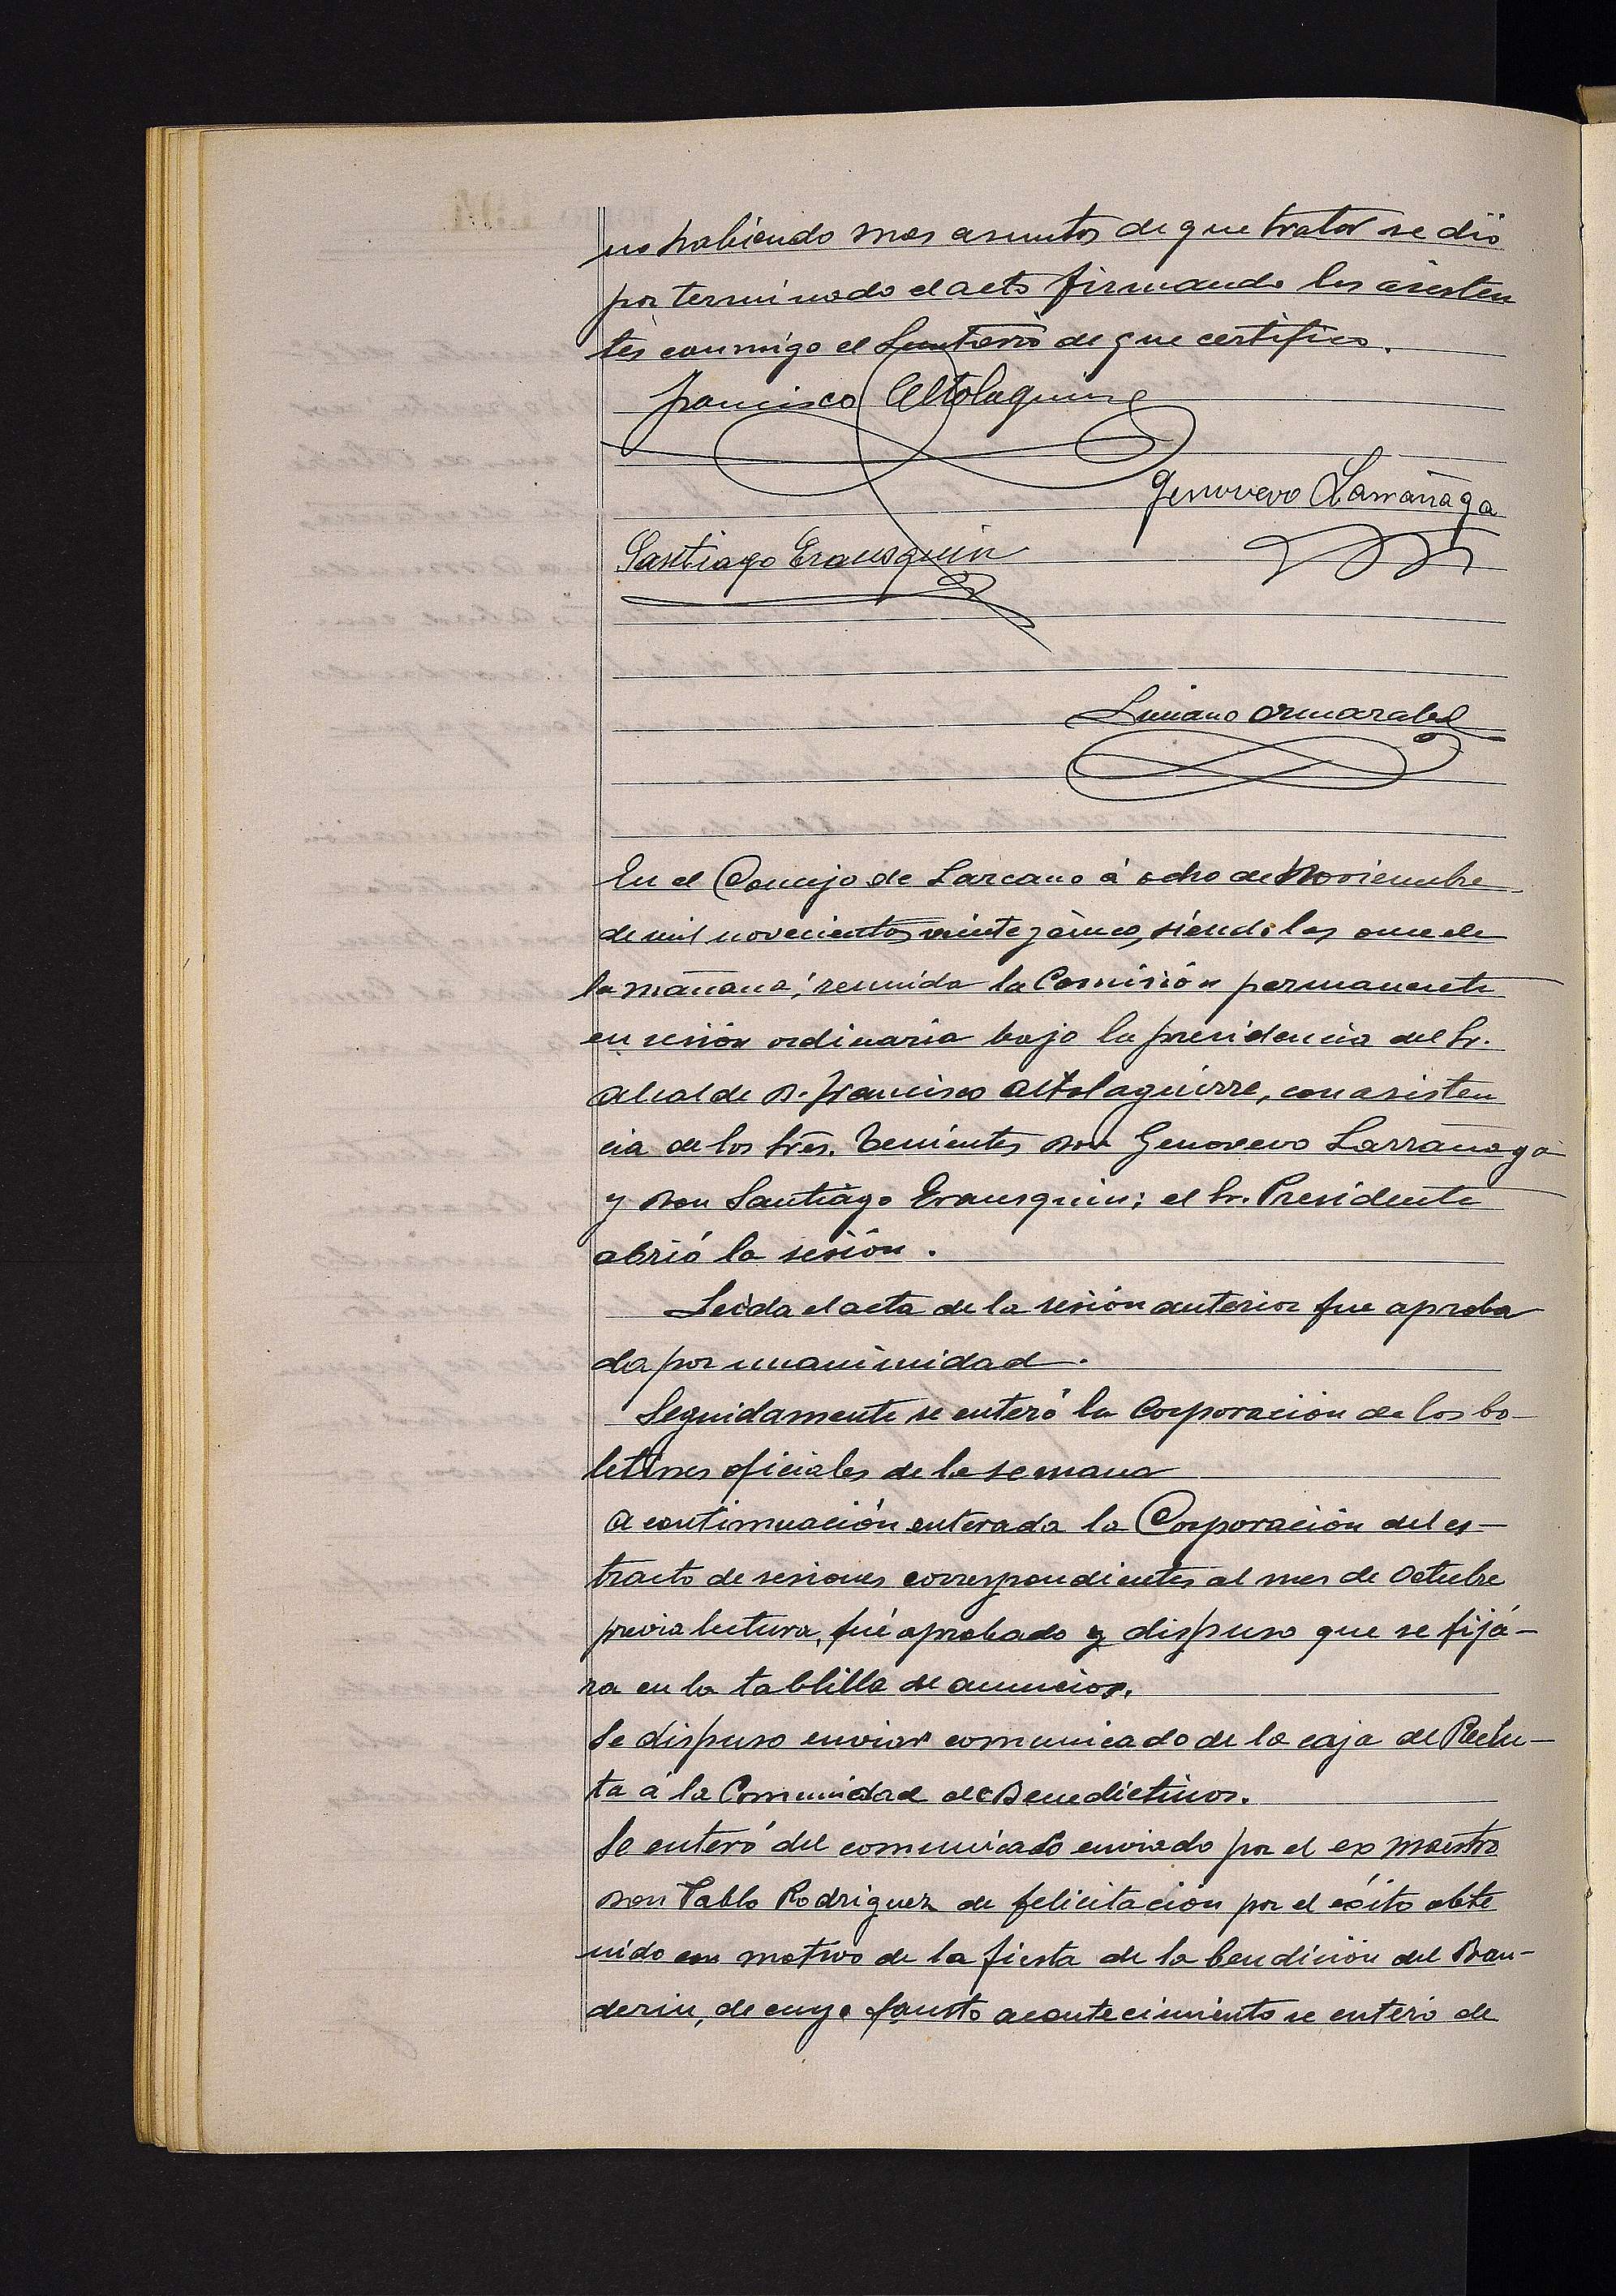 no habiendo mas asuntos de que tratar se dió
por terminado el acto firmando los asisten
tes conmigo el Secretario de que certifico.
Francisco Altolaguirre
Genovevo Larrañaga
Santiago Erausquin
Luciano Armazabal
En el Concejo de Lazcano á ocho de Noviembre
de mil novecientos veinte y cinco, siendo las once de
la mañana, reunida la Comisión permanente
en sesión ordinaria bajo la presidencia del Sr.
Alcalde D. Francisco Altolaguirre, con asisten
cia de los Sres. Tenientes don Genovevo Larrañaga
y don Santiago Erausquin; el Sr. Presidente
abrió la sesión.
Leida el acta de la sesión anterior fue aproba
da por unanimidad.
Seguidamente se enteró la Corporación de los bo-
letines oficiales de la semana
A continuación enterada la Corporación del es-
tracto de sesiones correspondientes al mes de Octubre
previa lectura, fué aprobado y dispuso que se fijá-
ra en la tablilla de anuncios.
Se dispuso enviar comunicado de la caja de Reclu-
ta á la Comunidad de Benedictinos.
Se enteró del comunicado enviado por el ex maestro
don Pablo Rodriguez de felicitación por el éxito obte
nido con motivo de la fiesta de la bendición del Ban-
derin, de cuyo fausto acontecimiento se enteró de